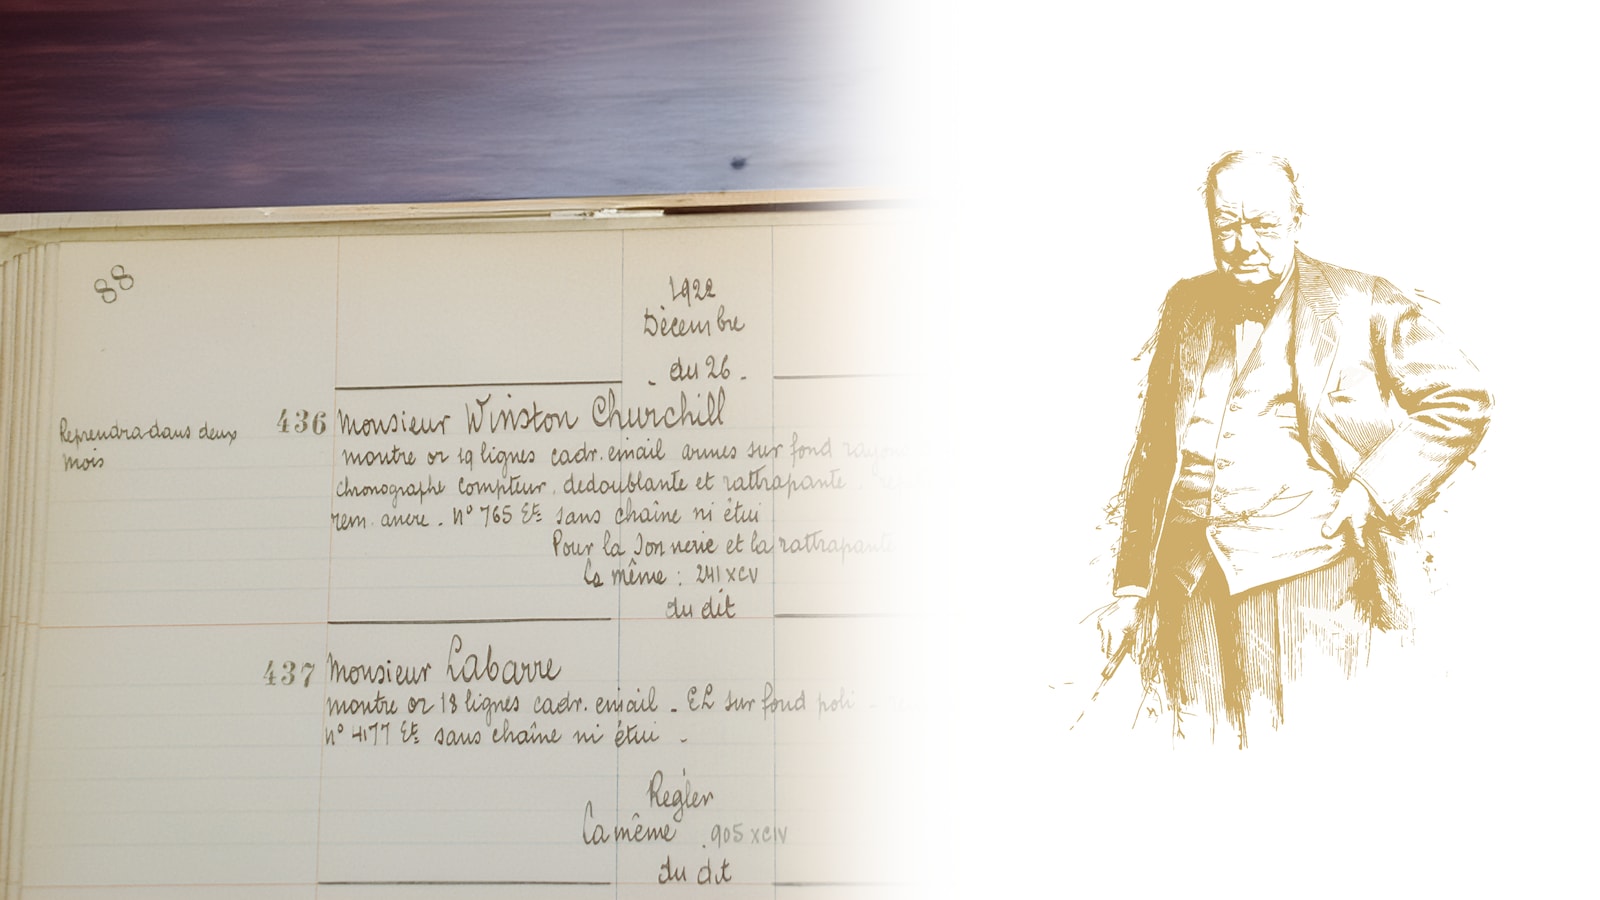 88
1922
Décembre
- du 26 -
Reprendra dans deux
mois
436 Monsieur Winston Churchill
montre or 19 lignes cadr. email armes sur fond
chronographe compteur, dedoublante et rattrapante.
rem. ancre. n° 765 Et sans chaîne ni étui
Pour la Sonnerie et la rattrapante
La même : 241 XCV
du dit
437 Monsieur Labarre
montre or 18 lignes cadr. email - EL sur fond poli -
n° 4177 Et sans chaîne ni étui -
Regler
La même . 905 XCIV
du dit